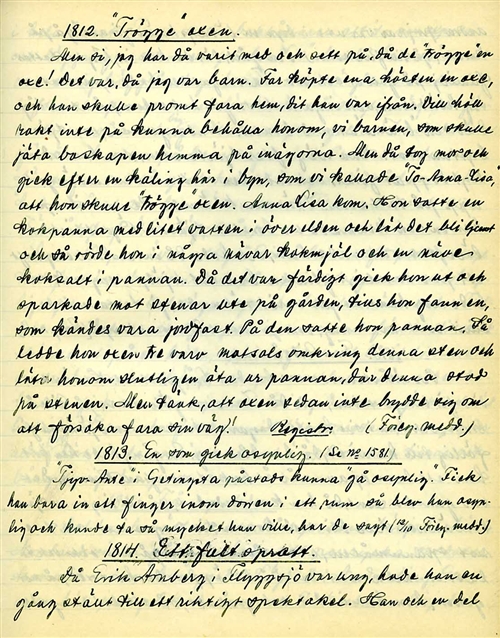 1812. "Trögge" oxen.
Men si, jag har då varit med och sett på, då de "trögge" en
oxe! Det var, då jag var barn. Far köpte ena hösten en oxe,
och han skulle promt fara hem, dit han var ifrån. Vill höll
rakt inte på kunna behålla honom, vi barnen, som skulle
jäta boskapen hemma på inägorna. Men då tog mor och
gick efter en käling här i byn, som vi kallade "To-Anna-Lisa",
att hon skulle trögge oxen. Anna Lisa kom. Hon satte en
kokpanna med litet vatten i över elden och lät det bli ljumt
och så rörde hon i några nävar kokmjäl och en näve
koksalt i pannan. Då det var färdigt gick hon ut och
sparkade mot stenar ute på gården, tills hon fann en,
som kändes vara jordfast. På den satte hon pannan. Så
ledde hon oxen tre varv motsols omkring denna sten och
läto honom slutligen äta ur pannan, där denna stod
på stenen. Men tänk, att oxen sedan inte brydde sig om
att försöka fara sin väg! Registr. (Föreg. medd.)
1813. En som gick osynlig. (Se nº 1581.)
"Tjyv-Ante" i Getingsta påstods kunna "gå osynlig". Fick
han bara in ett finger inom dörren i ett rum så blev han osyn-
lig och kunde ta så mycket han ville, har de sagt (12/10 Föreg. medd.)
1814. Ett fult spratt.
Då Erik Amberg i Flyggsjö var ung, hade han en
gång ställt till ett riktigt spektakel. Han och en del